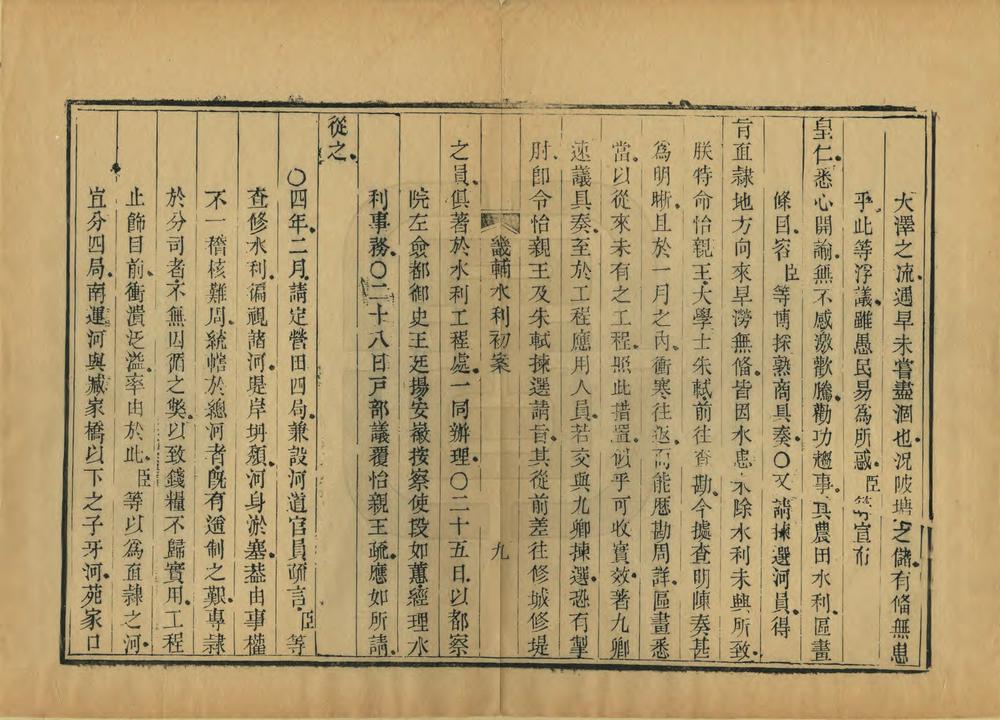 大澤之流遇旱未嘗盡涸也況陂塘之儲有備無患
乎此等浮議雖愚民易爲所惑臣等宣布
皇仁悉心開諭無不感激歡騰勸功趨事其農田水利區畫
條目容臣等博採熟商具奏○又請揀選河員得
旨直隸地方向來旱澇無備皆因水患未除水利未興所致
朕特命怡親王大學士朱軾前往查勘今據查明陳奏甚
爲明晰且於一月之內衝寒往返而能歷勘周詳區畫悉
當以從來未有之工程照此措置似乎可收實效著九卿
速議具奏至於工程應用人員若交與九卿揀選恐有掣
肘卽令怡親王及朱軾揀選請旨其從前差往修城修堤
畿輔水利初案
九
之員俱著於水利工程處一同辦理○二十五日以都察
院左僉都御史王廷揚安徽按察使段如蕙經理水
利事務○二十八日戸部議覆怡親王疏應如所請
從之
○四年二月請定營田四局兼設河道官員疏言臣等
查修水利徧視諸河堤岸坍頹河身淤塞葢由事權
不一稽核難周統轄於總河者旣有遙制之艱專隸
於分司者不無因循之弊以致錢糧不歸實用工程
止飾目前衝潰泛溢率由於此臣等以爲直隸之河
宜分四局南運河與臧家橋以下之子牙河苑家口